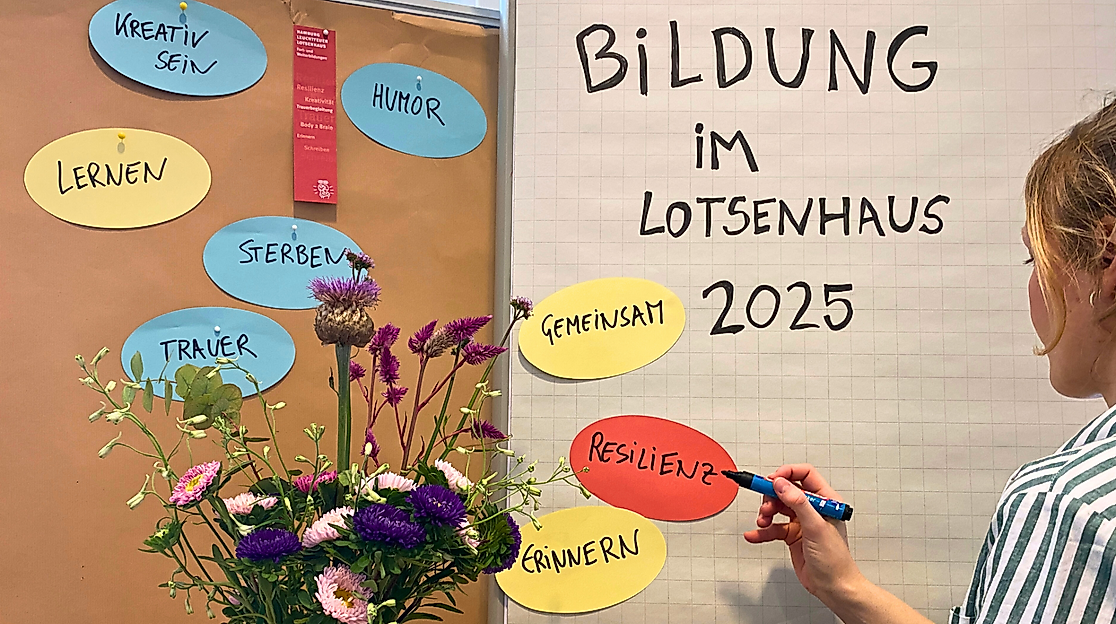 KREATIV
SEIN
HAMBURG
LEUCHTFEUER
LOTSENHAUS
Fort- und
Weiterbildungen
Resilienz
Kreativität
Trauerbegleitung
TRAUER
Body 2 Brain
Erinnern
Schreiben
HUMOR
LERNEN
STERBEN
TRAUER
BiLDUNG
iM
LOTSENHAUS
2025
GEMEiNSAM
RESiLiENZ
ERiNNERN